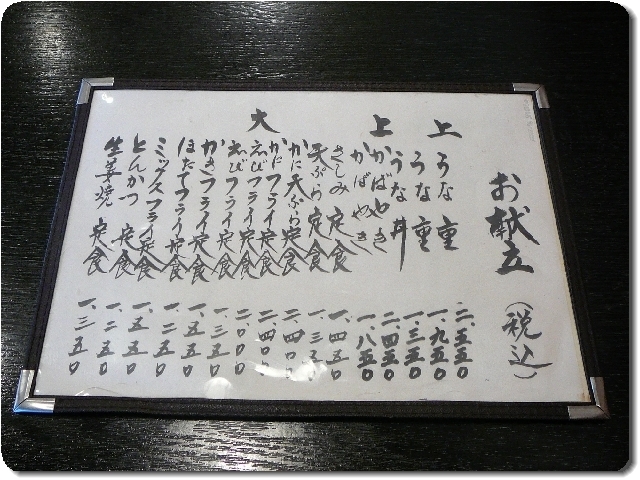 お献立（税込）
上うな重 二、五五〇
うな重 一、九五〇
うな丼 一、三五〇
上かばやき 二、四五〇
かばやき 一、八五〇
さしみ定食 一、四五〇
天ぷら定食 一、三五〇
かに天ぷら定食 二、四〇〇
かにフライ定食 二、四〇〇
大えびフライ定食 二、〇〇〇
えびフライ定食 一、三五〇
かきフライ定食 一、五五〇
ほたてフライ定食 一、二五〇
ミックスフライ定食 一、五五〇
とんかつ定食 一、二五〇
生姜焼定食 一、三五〇